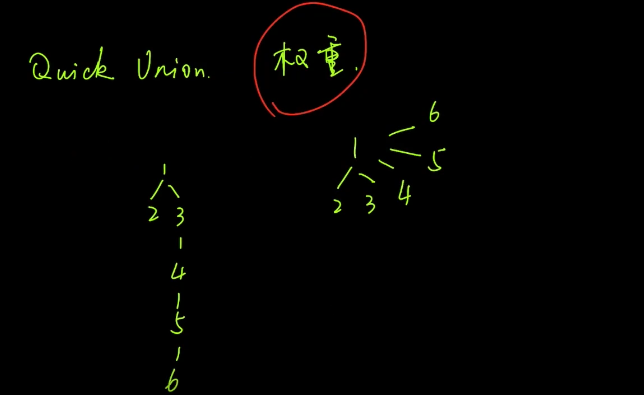 Quick Union. 权重.
1
2 3
4
5
6
1 6
5
2 3 4